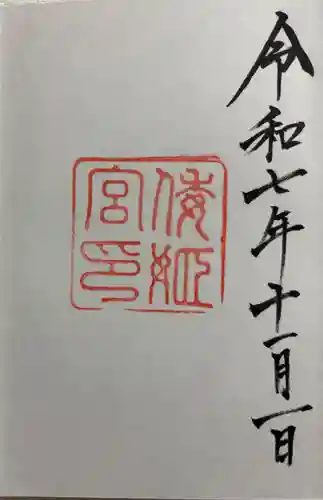 令和七年十一月一日
倭姫
宮印